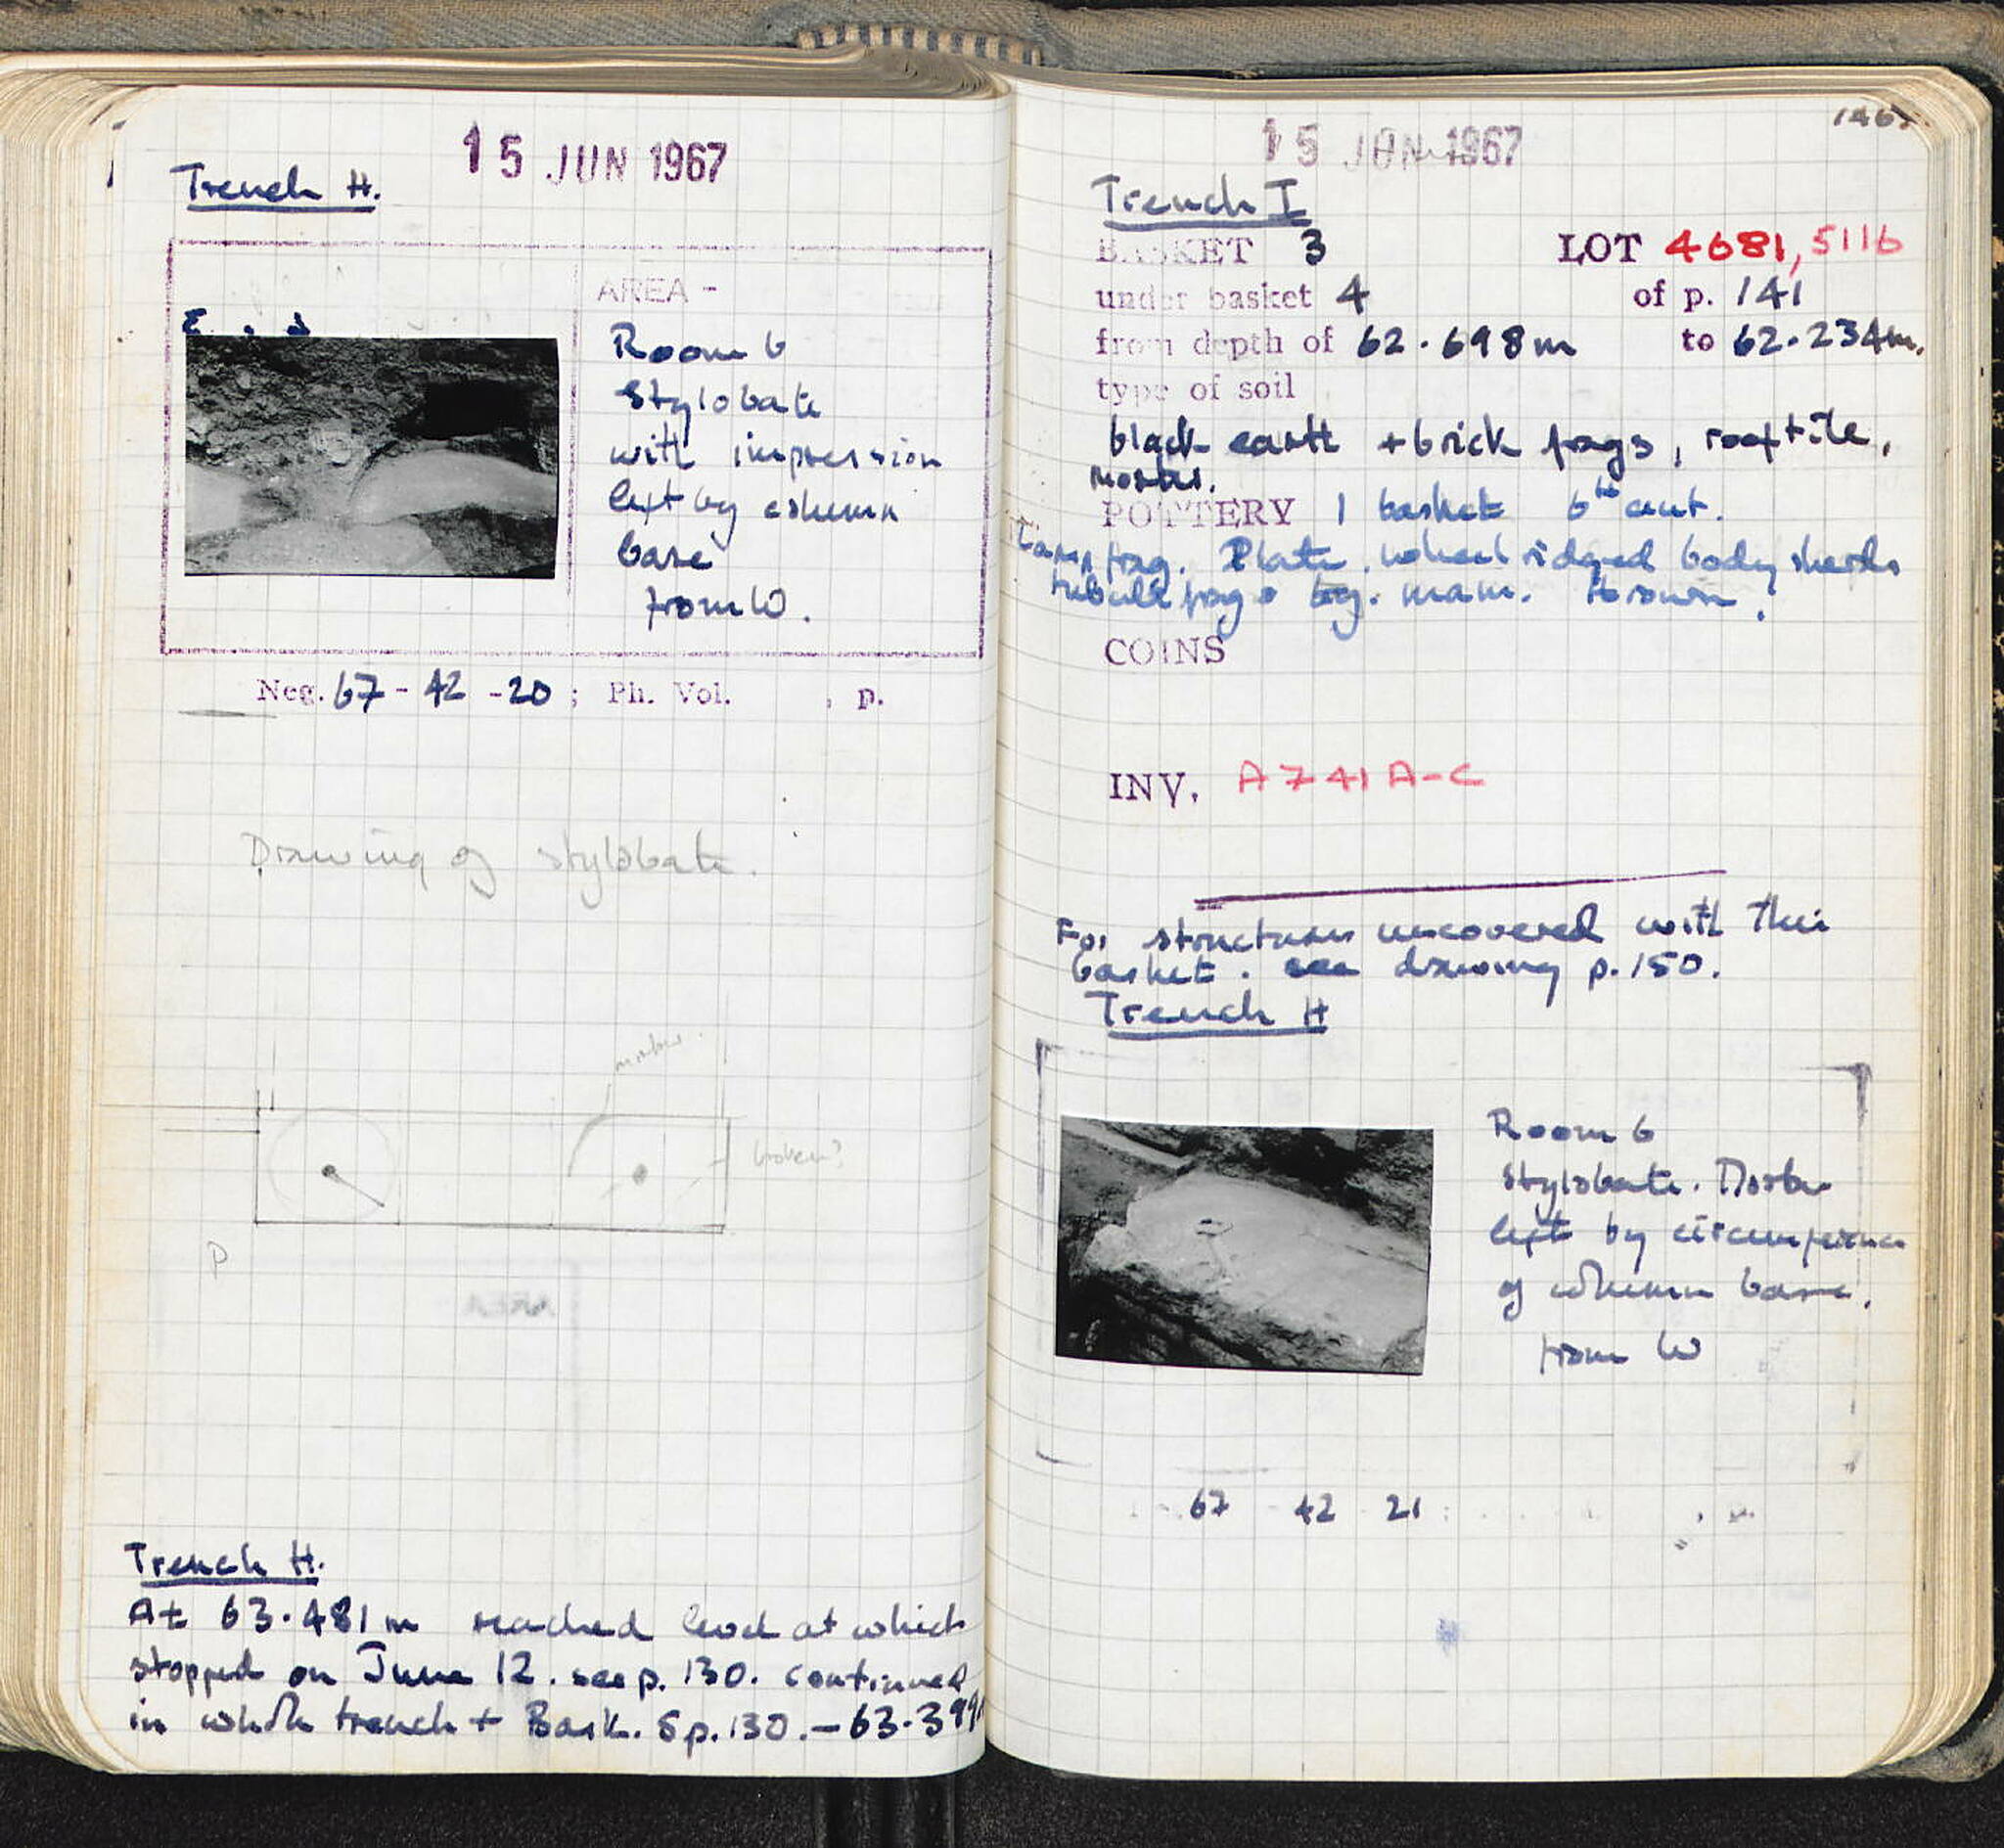 15 JUN 1967
Trench H.
AREA -
Room 6
Stylobate
with impression
left by column
base
from W.
Neg. 67 - 42 - 20 ; Ph. Vol. , p.
Drawing of stylobate.
mortar.
broken?
P
Trench H.
At 63.481m reached level at which
stopped on June 12. see p. 130. Continued
in whole trench + Bask. 5 p. 130. — 63.399
146
15 JUN 1967
Trench I
BASKET 3 LOT 4681, 5116
under basket 4 of p. 141
from depth of 62.698m to 62.234m.
type of soil
black earth + brick frags, rooftile,
mortar.
POTTERY 1 basket 6th cent.
Lamp frag. Plate, wheel ridged body sherds
tubuli frags
COINS
INV. A741A-C
For structures uncovered with this
basket. see drawing p. 150.
Trench H
Room 6
Stylobate. Mortar
left by circumference
of column base.
from W
67 42 21